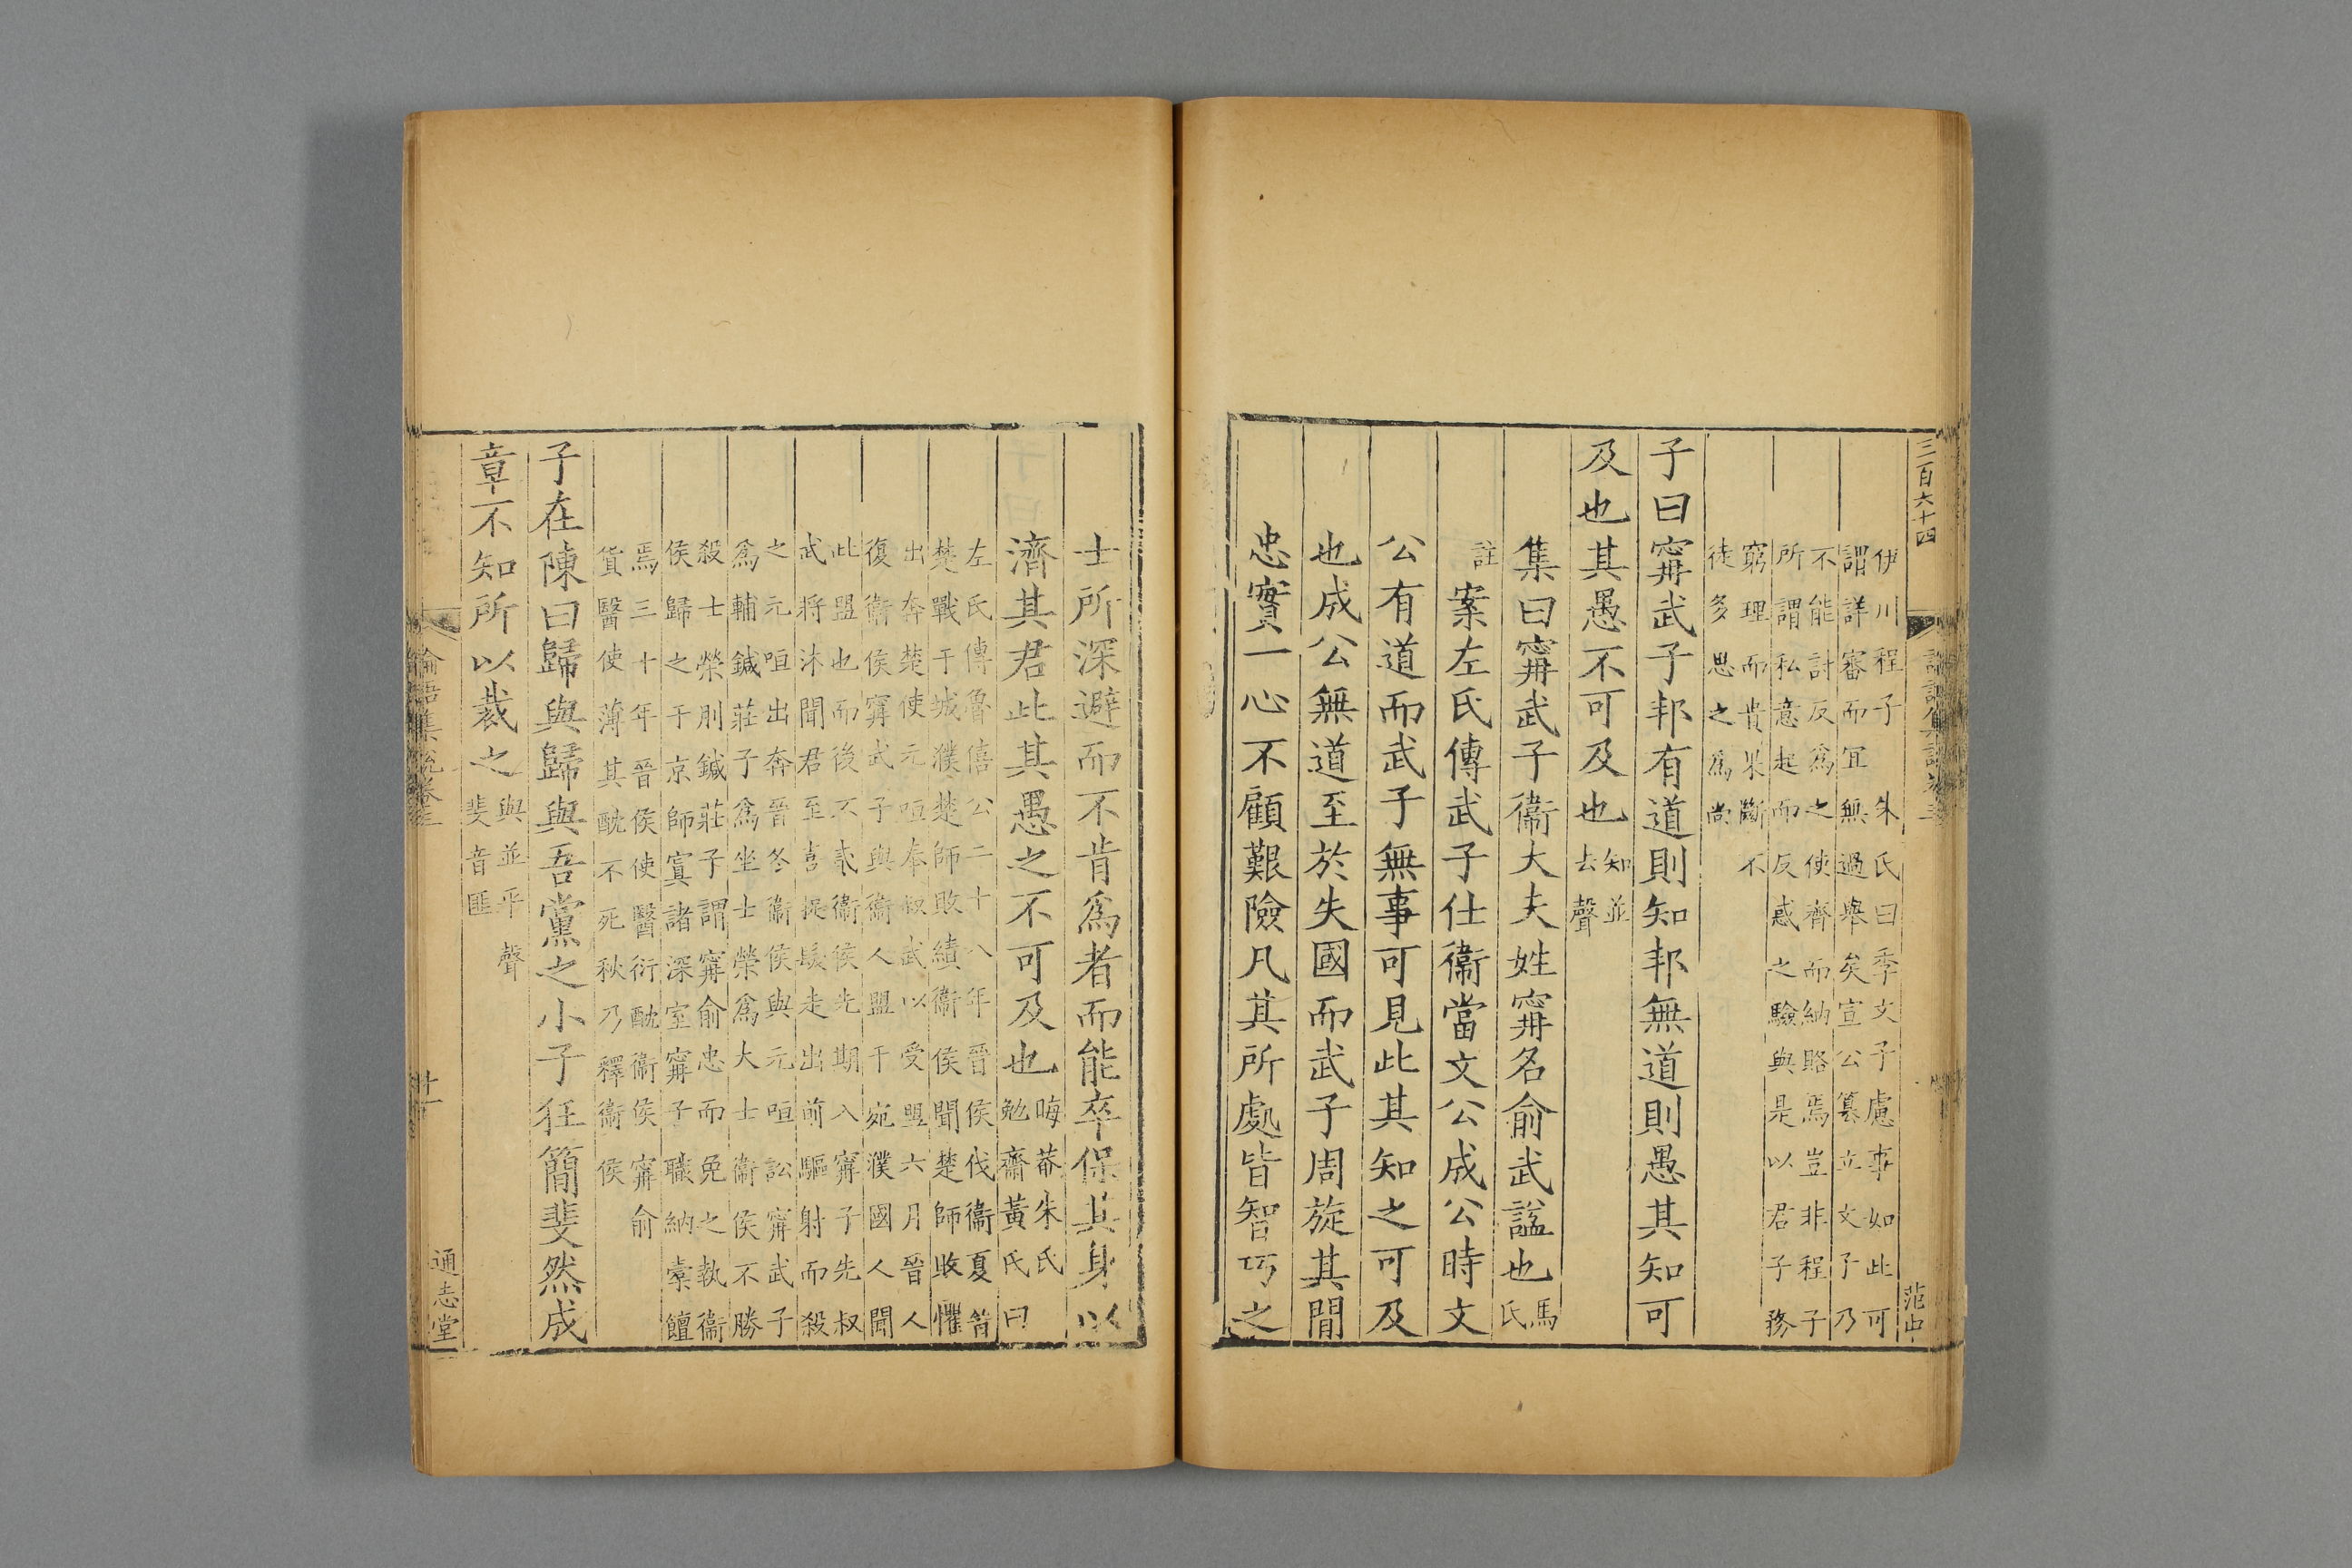 三百六十四
范中
伊川程子　朱氏曰季文子慮事如此可
謂詳審而宜無過舉矣宣公簒立文子乃
不能討反爲之使齊而納賂焉豈非程子
所謂私意起而反惑之驗與是以君子務
窮理而貴果斷不
徒多思之爲尚
子曰甯武子邦有道則知邦無道則愚其知可
及也其愚不可及也
知並
去聲
集曰甯武子衞大夫姓甯名俞武諡也
馬
氏
註
案左氏傳武子仕衞當文公成公時文
公有道而武子無事可見此其知之可及
也成公無道至於失國而武子周旋其閒
忠實一心不顧艱險凡其所處皆智巧之
士所深避而不肯爲者而能卒保其身以
濟其君此其愚之不可及也
晦菴朱氏
勉齋黃氏曰
左氏傳魯僖公二十八年晉侯伐衞夏晉
楚戰于城濮楚師敗績衞侯聞楚師敗懼
出奔楚使元咺奉叔武以受盟六月晉人
復衞侯甯武子與衞人盟于宛濮國人聞
此盟也而後不貳衞侯先期入甯子先叔
武將沐聞君至喜捉髮走出前驅射而殺
之元咺出奔晉冬衞侯與元咺訟甯武子
爲輔鍼莊子爲坐士榮爲大士衞侯不勝
殺士榮刖鍼莊子謂甯俞忠而免之執衞
侯歸之于京師寘諸深室甯子職納橐饘
焉三十年晉侯使醫衍酖衞侯甯俞
貨醫使薄其酖不死秋乃釋衞侯
子在陳曰歸與歸與吾黨之小子狂簡斐然成
章不知所以裁之
與並平聲
斐音匪
論語集說卷三
十一
通志堂